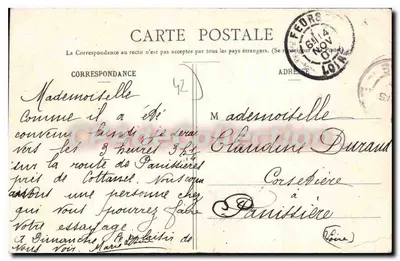 CARTE POSTALE
La Correspondance au recto n'est pas acceptée par tous les pays étrangers. (Se
CORRESPONDANCE
ADRE
42
FEURS
14
NOV
07
LOIRE
Mademoiselle
Comme il a été
convenu lundi je serai
vers les 3 heures 3 h
sur la route de Panissières
près de Cottance.
avons une personne chez
qui vous pourrez faire
votre essayage.
A Dimanche le plaisir de
vous voir. Marie
Mademoiselle
Claudine Durand
Corsetière
à
Panissière
(Loire)